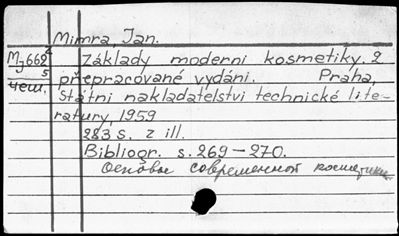 Mimra, Jan.
Mj662²/5 Základy moderní kosmetiky. 2
přepracované vydání. Praha,
чеш. Státní nakladatelství technické lite-
ratury, 1959
283 s. z ill.
Bibliogr. s. 269-270.
Основы современной косметики